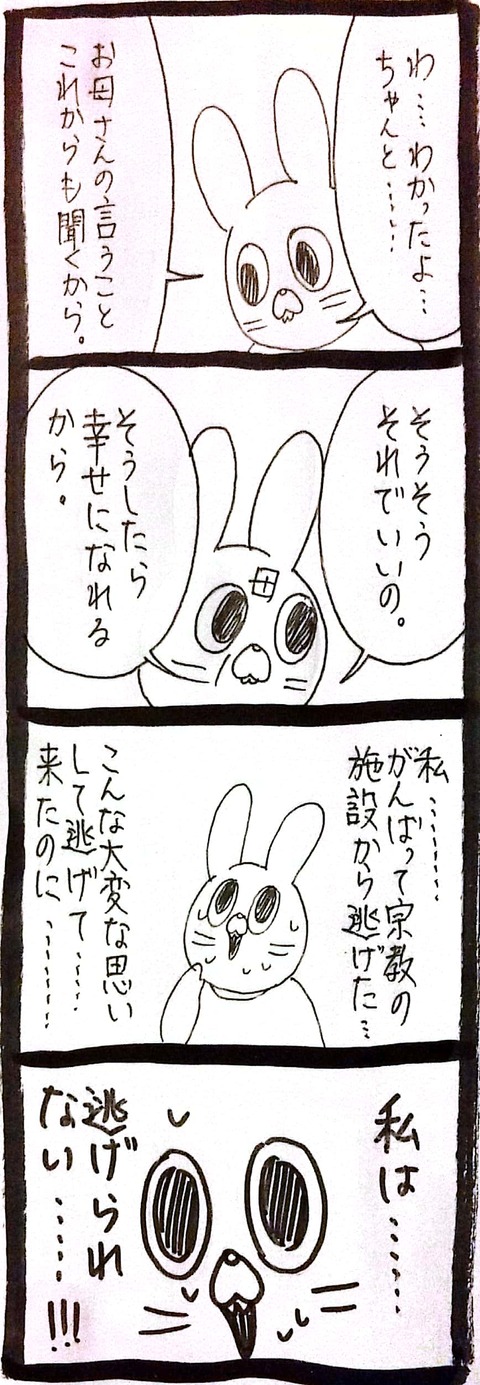 わ……わかったよ…
ちゃんと……
お母さんの言うこと
これからも聞くから。
そうそう
それでいいの。
母
そうしたら
幸せになれる
から。
私………
がんばって宗教の
施設から逃げた…
こんな大変な思い
して逃げて……
来たのに………
私は………
逃げられ
ない……!!!